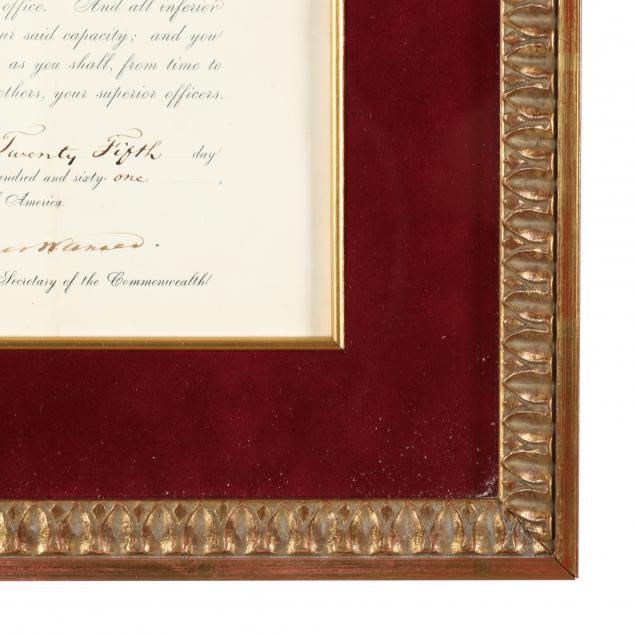 office. And all inferior
ur said capacity; and you
as you shall, from time to
others, your superior officers.
Twenty Fifth day
undred and sixty-one ,
America.
Secretary of the Commonwealth